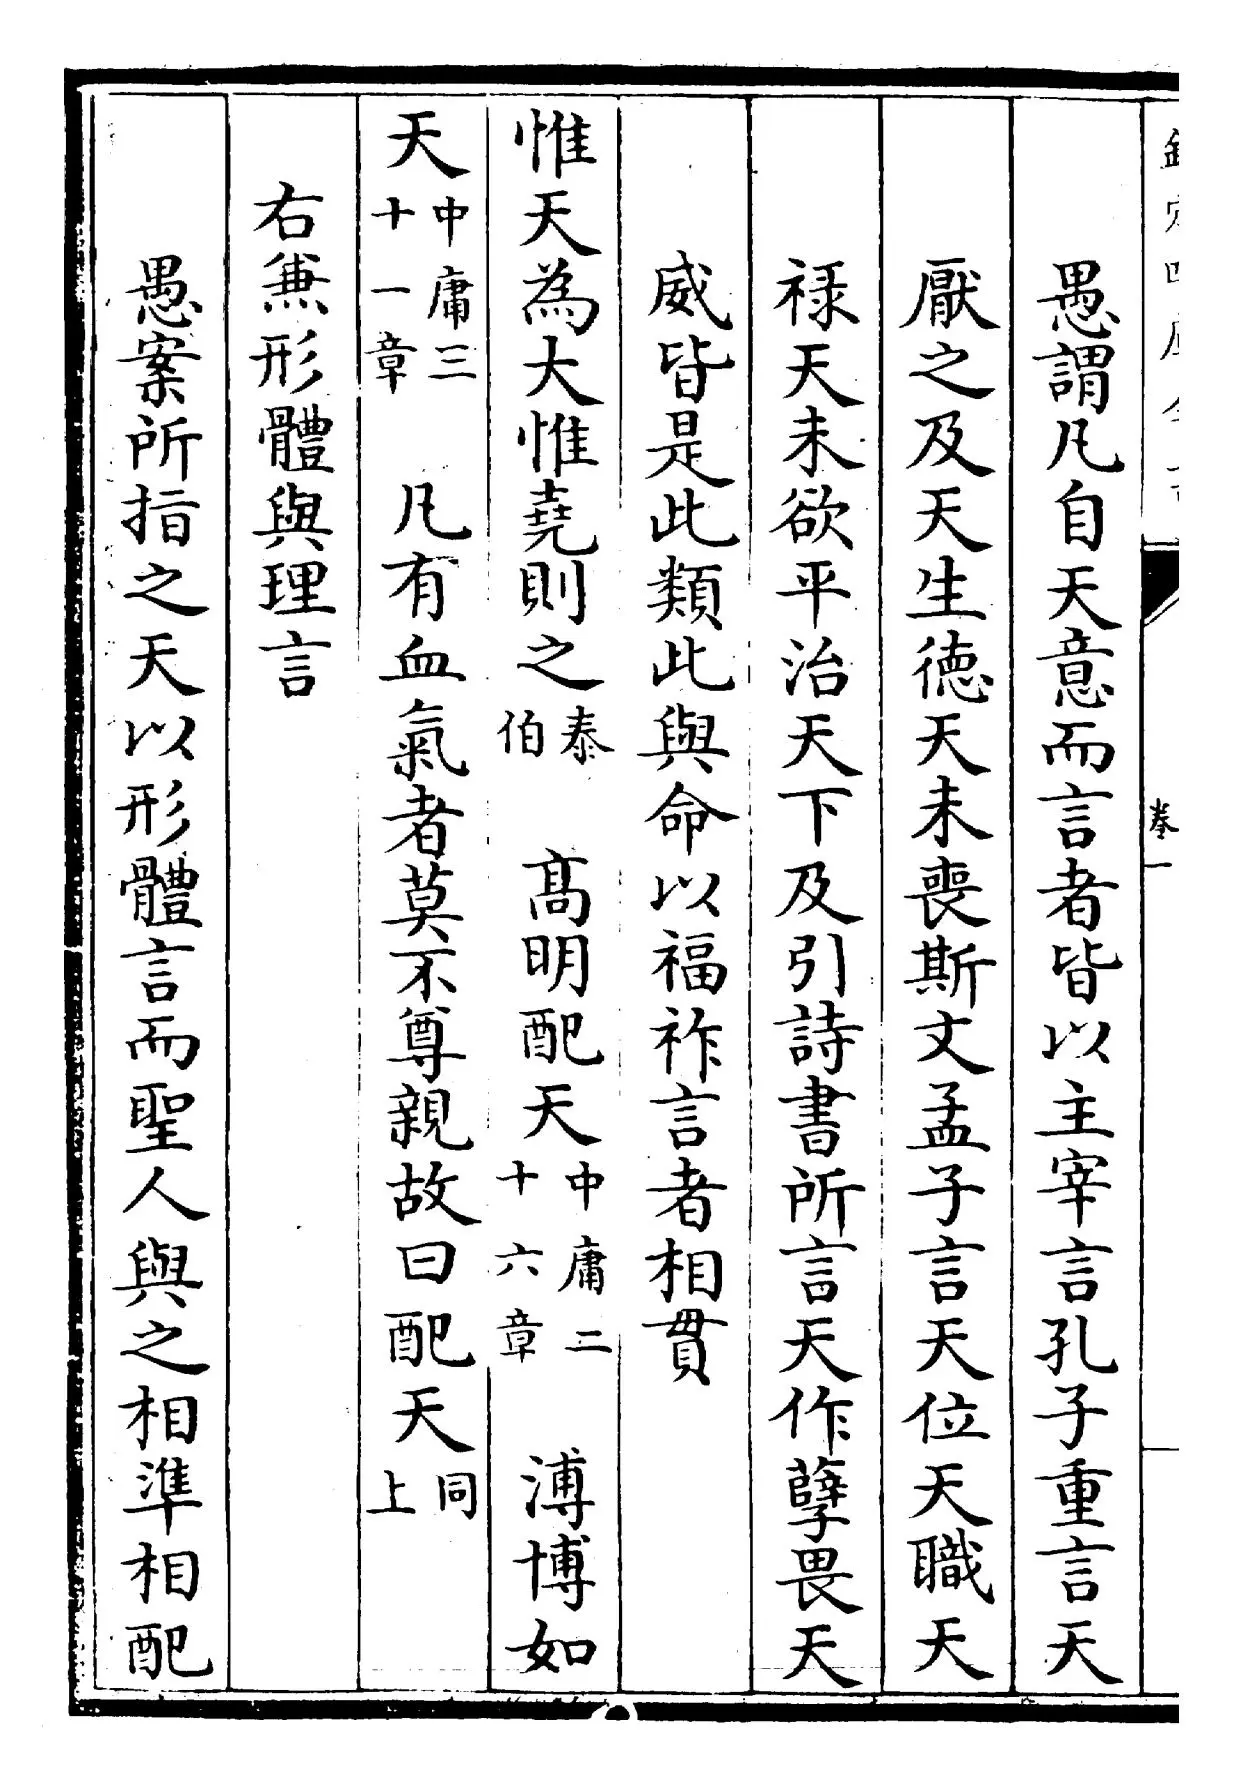 愚謂凡自天意而言者皆以主宰言孔子重言天
厭之及天生徳天未喪斯文孟子言天位天職天
禄天未欲平治天下及引詩書所言天作孽畏天
威皆是此類此與命以福祚言者相貫
惟天為大惟堯則之泰伯 髙明配天中庸二十六章 溥博如
天中庸三十一章 凡有血氣者莫不尊親故曰配天同上
右兼形體與理言
愚案所指之天以形體言而聖人與之相凖相配
卷一